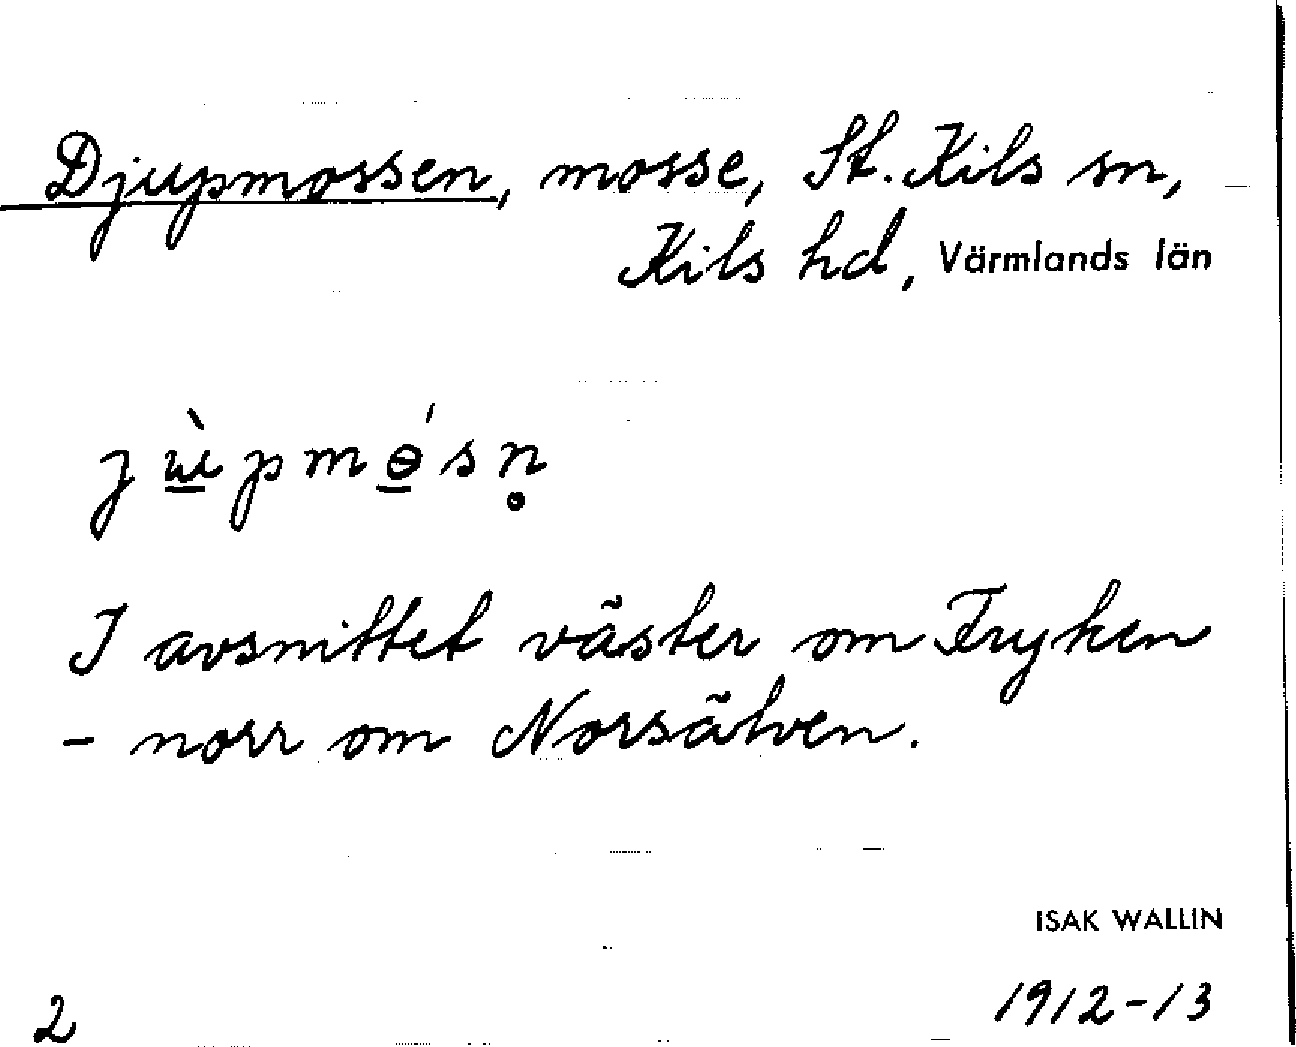 Djupmossen, mosse, St. Kils sn,
Kils hd, Värmlands län
jɯ̲̀pmɵ̲́sn̥
I avsnittet väster om Fryken
- norr om Norsälven.
ISAK WALLIN
1912-13
2